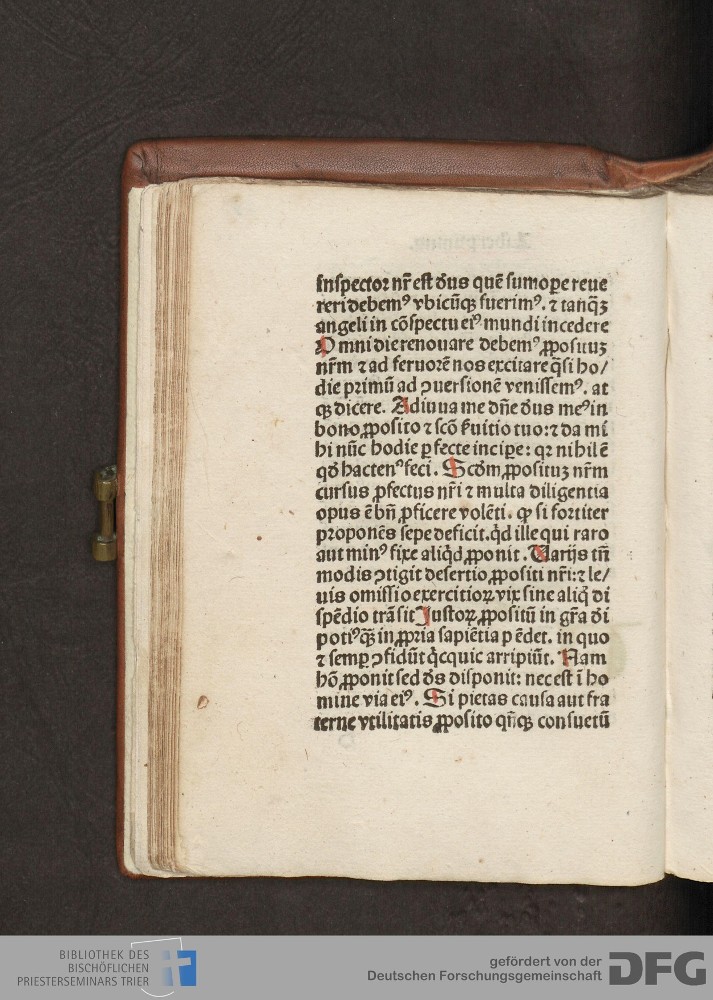 inspector nr̄ est d̄us quē sumope reue
reri debemꝰ vbicūqꝫ fuerimꝰ. ⁊ tanq̄ꝫ
angeli in cōspectu eiꝰ mundi incedere
Omni die renouare debemꝰ ꝓpositum
nr̄m ⁊ ad feruorē nos excitare q̄si ho/
die primū ad ꝯuersionē venissemꝰ. at
qꝫ dicere. Adiuua me dn̄e d̄us meꝰ in
bono ꝓposito ⁊ scō ẜuitio tuo: ⁊ da mi
hi nūc hodie ꝑfecte incipe: qꝛ nihil ē
qd̄ hactenꝰ feci. Scd̄m ꝓpositum nr̄m
cursus ꝓfectus nr̄i ⁊ multa diligentia
opus ē bn̄ ꝓficere volēti. ꝙ si fortiter
proponēs sepe deficit. qͥd ille qui raro
aut minꝰ fixe aliqͥd ꝓponit. Varijs tn̄
modis ꝯtigit desertio ꝓpositi nr̄i: ⁊ le/
uis omissio exercitioꝝ vix sine aliqͦ di
spēdio trāsit Iustoꝝ ꝓpositū in gr̄a di
potiꝰqꝫ in ꝓpria sapiētia pēdet. in quo
⁊ semꝑ ꝯfidūt qͥcquic arripiūt. Nam
hō ꝓponit sed ds̄ disponit: nec est ī ho
mine via eiꝰ. Si pietas causa aut fra
terne vtilitatis ꝓposito qn̄qꝫ consuetū
BIBLIOTHEK DES
BISCHÖFLICHEN
PRIESTERSEMINARS TRIER
gefördert von der
Deutschen Forschungsgemeinschaft DFG